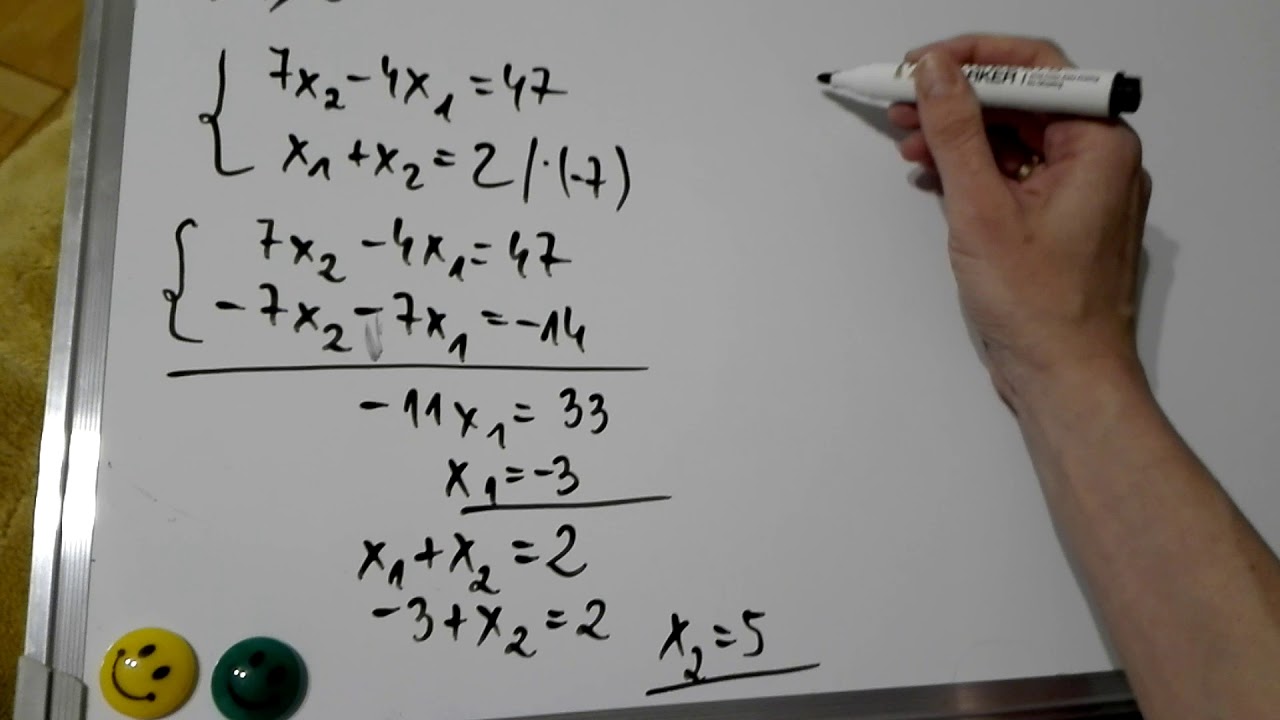 7x₂ - 4x₁ = 47
x₁ + x₂ = 2 / · (-7)
7x₂ - 4x₁ = 47
-7x₂ - 7x₁ = -14
-11x₁ = 33
x₁ = -3
x₁ + x₂ = 2
-3 + x₂ = 2
x₂ = 5